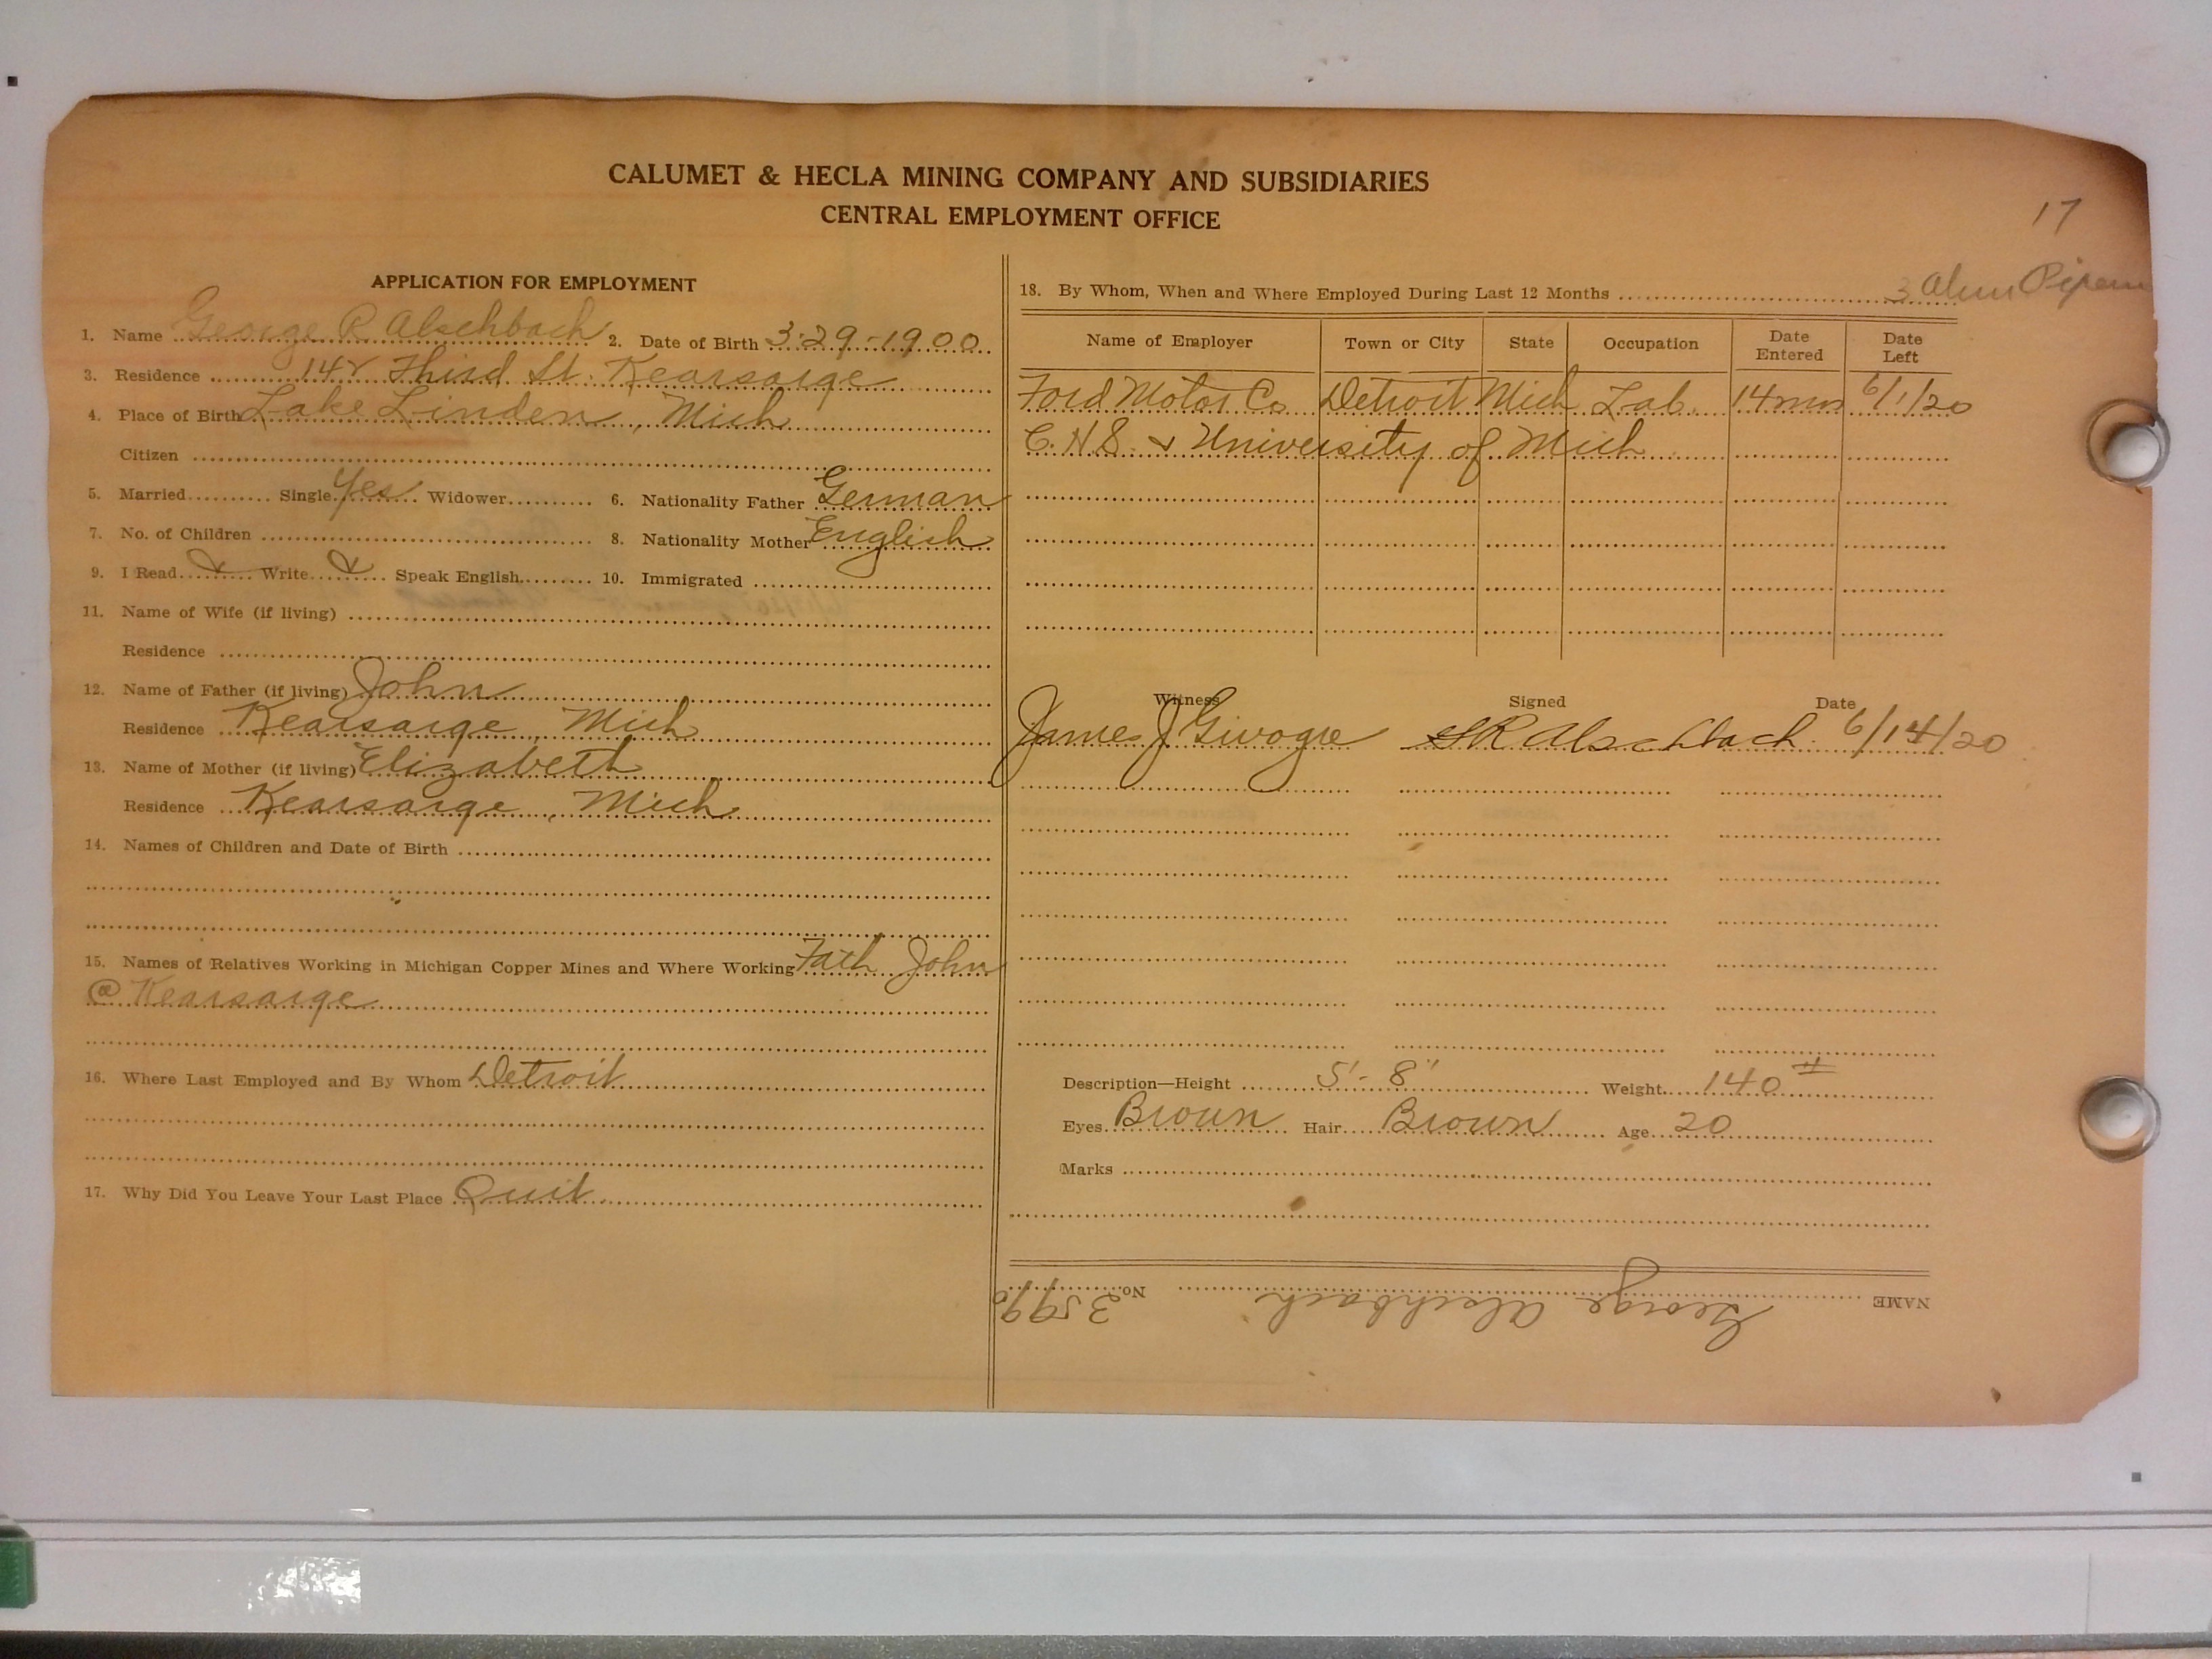 CALUMET & HECLA MINING COMPANY AND SUBSIDIARIES
CENTRAL EMPLOYMENT OFFICE
17
APPLICATION FOR EMPLOYMENT
1. Name George R Alschbach 2. Date of Birth 3-29-1900
3. Residence Third St. Kearsarge
4. Place of Birth Lake Linden, Mich
Citizen
5. Married Single Yes Widower 6. Nationality Father German
7. No. of Children 8. Nationality Mother English
9. I Read Write Speak English 10. Immigrated
11. Name of Wife (if living)
Residence
12. Name of Father (if living) John
Residence Kearsarge, Mich
13. Name of Mother (if living) Elizabeth
Residence Kearsarge, Mich
14. Names of Children and Date of Birth
15. Names of Relatives Working in Michigan Copper Mines and Where Working Fath John
@ Kearsarge
16. Where Last Employed and By Whom Detroit
17. Why Did You Leave Your Last Place Quit
18. By Whom, When and Where Employed During Last 12 Months 3
Name of Employer Town or City State Occupation Date Entered Date Left
Ford Motor Co Detroit Mich Lab. 14 mos 6/1/20
C.H.S. & University of Mich
Witness Signed Date
James J G R Alschbach 6/14/20
Description—Height 5'-8" Weight 140 #
Eyes Brown Hair Brown Age 20
Marks
NAME George Alschbach No.